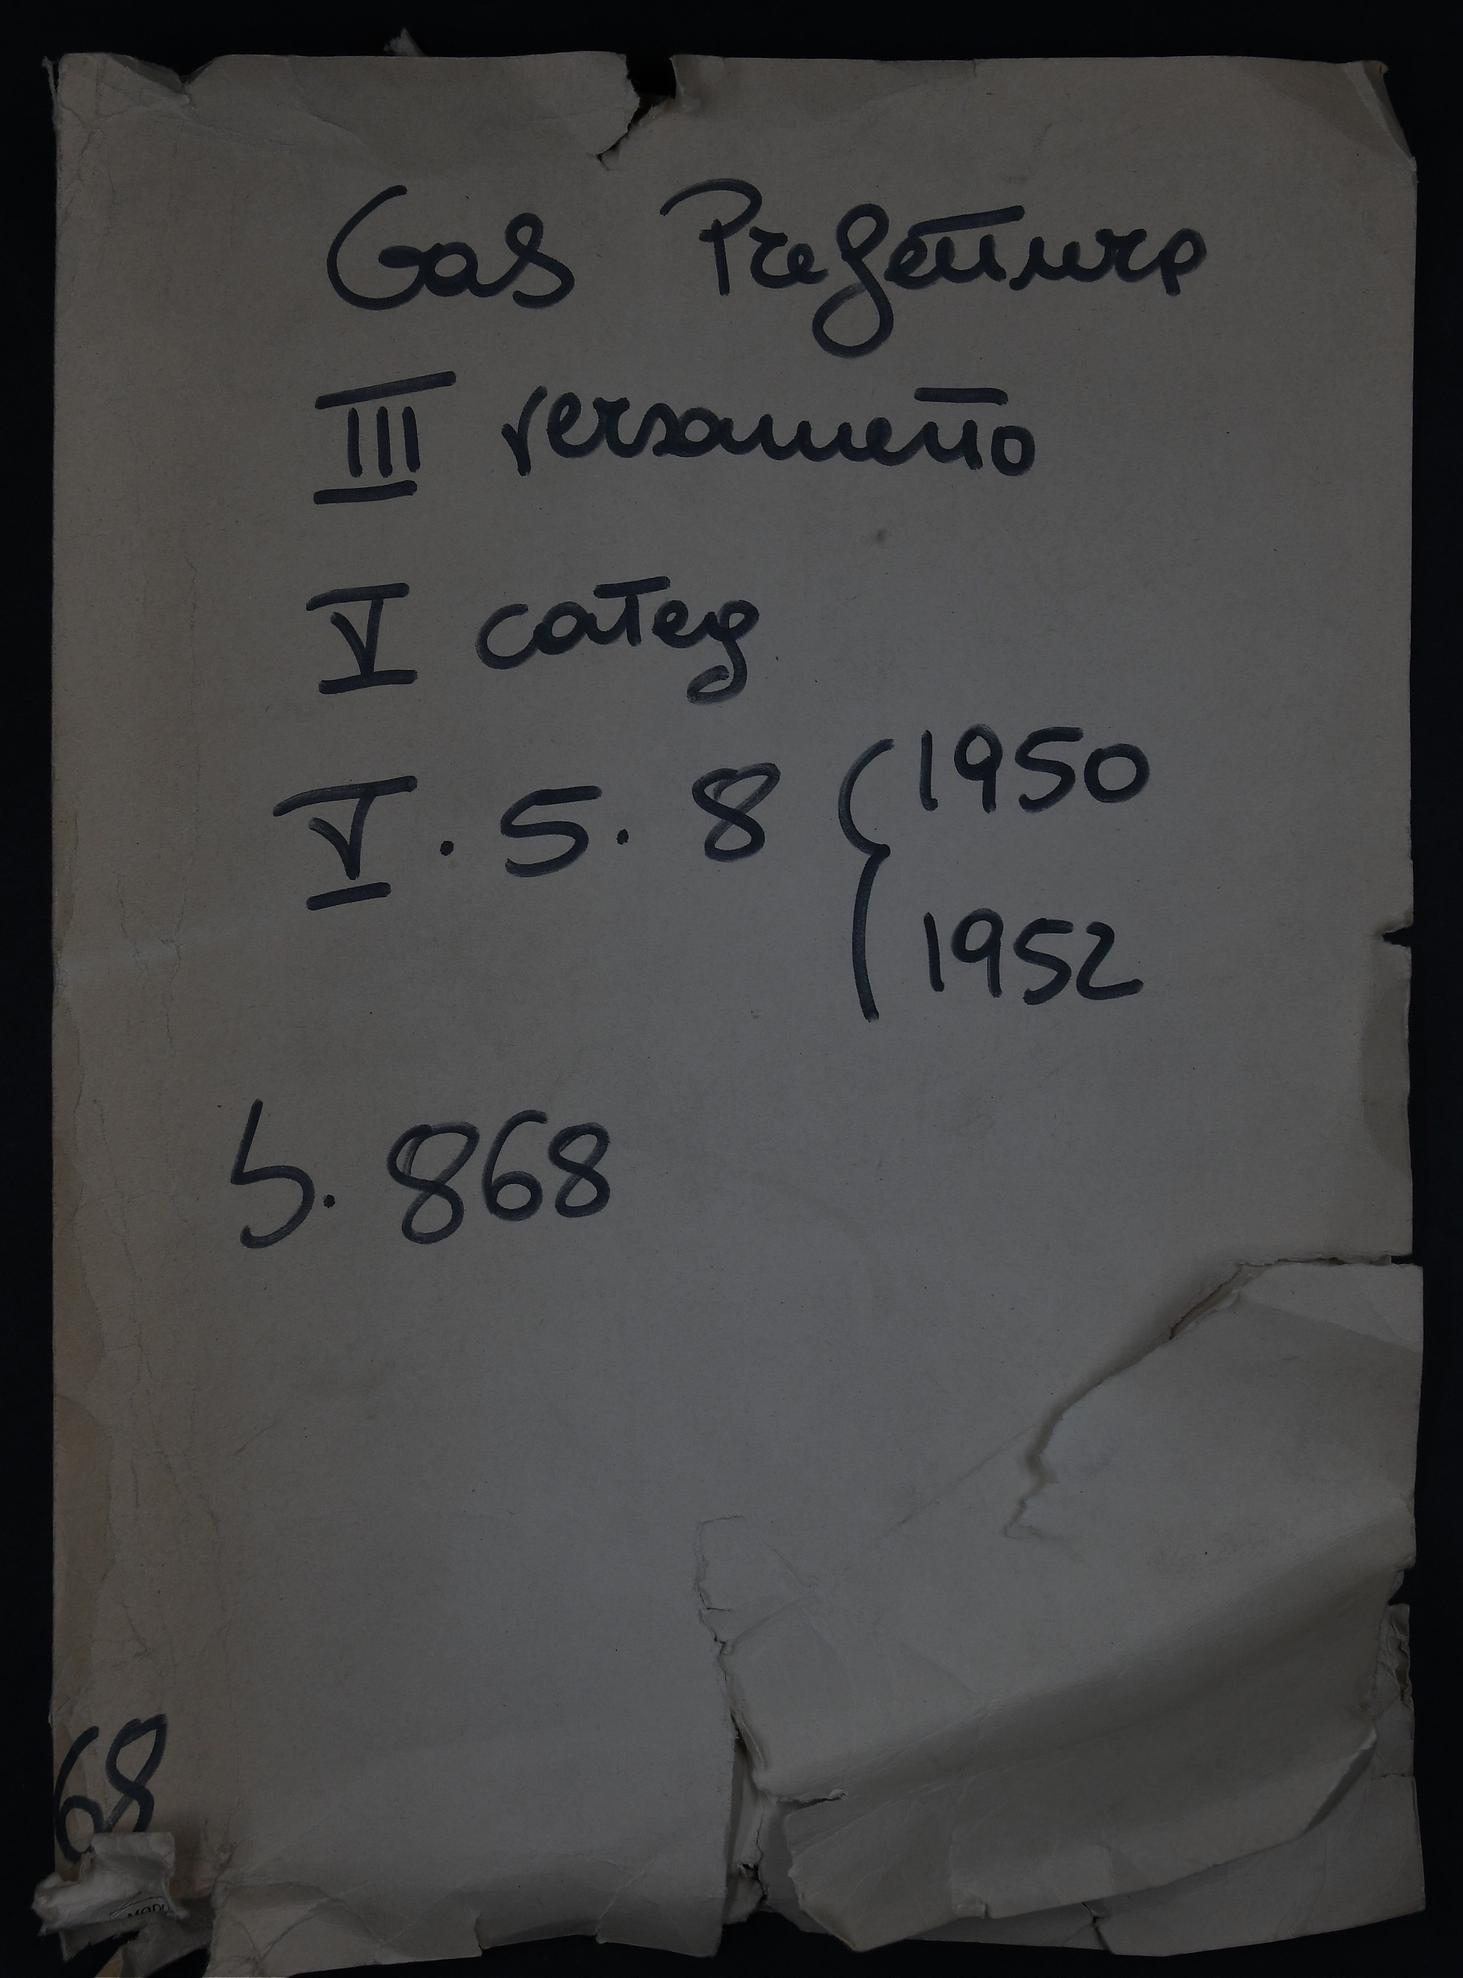 Gab Prefettura
III versamento
V categ
V. 5. 8 { 1950
1952
b. 868
68